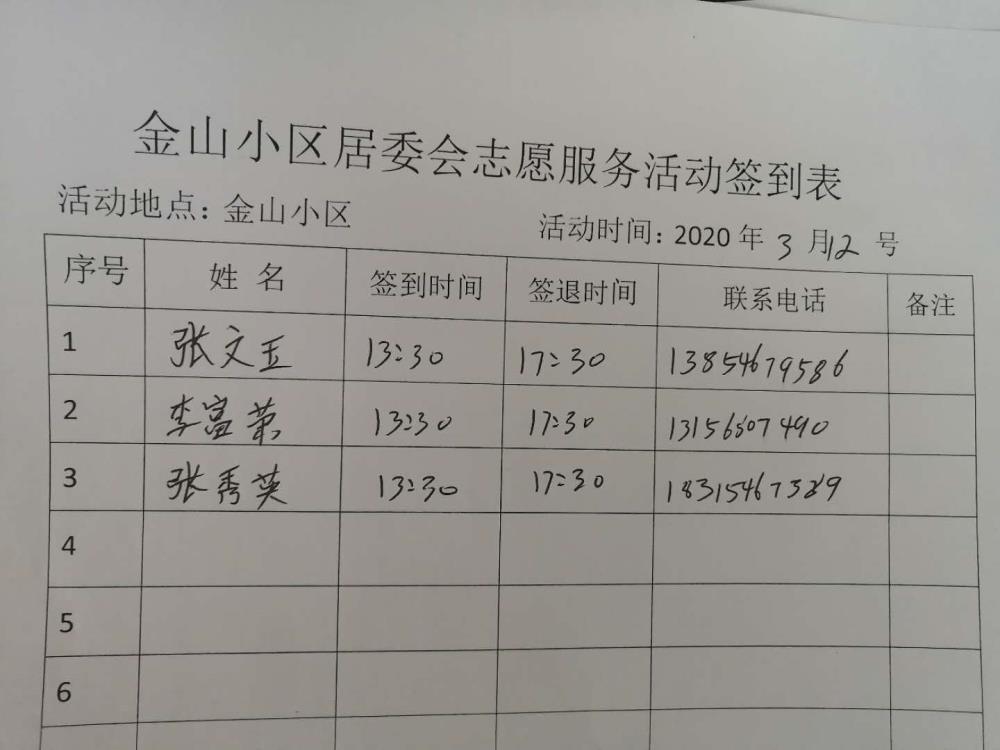 金山小区居委会志愿服务活动签到表
活动地点: 金山小区 活动时间: 2020 年 3 月12 号
序号 姓 名 签到时间 签退时间 联系电话 备注
1 张文玉 13:30 17:30 13854679586
2 李富荣 13:30 17:30 13156507490
3 张秀英 13:30 17:30 18315467389
4
5
6